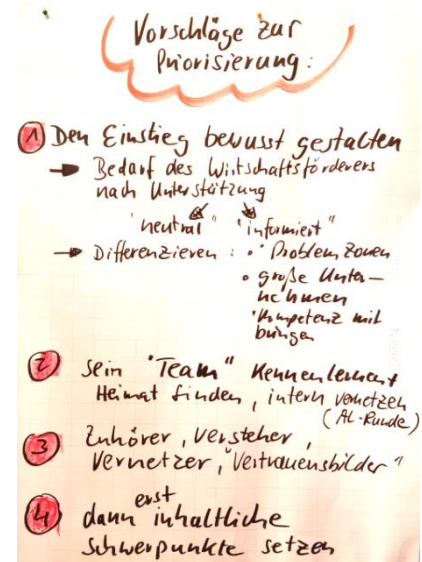 Vorschläge zur
Priorisierung:
1 Den Einstieg bewusst gestalten
→ Bedarf des Wirtschaftsförderers
nach Unterstützung
"neutral" "informiert"
→ Differenzieren: • Problemzonen
• große Unter-
nehmen
• Kompetenz mit
bringen
2 sein "Team" kennenlernen +
Heimat finden, intern vernetzen
(AL-Runde)
3 Zuhörer, Versteher,
Vernetzer, "Vertrauensbilder"
4 dann erst inhaltliche
Schwerpunkte setzen